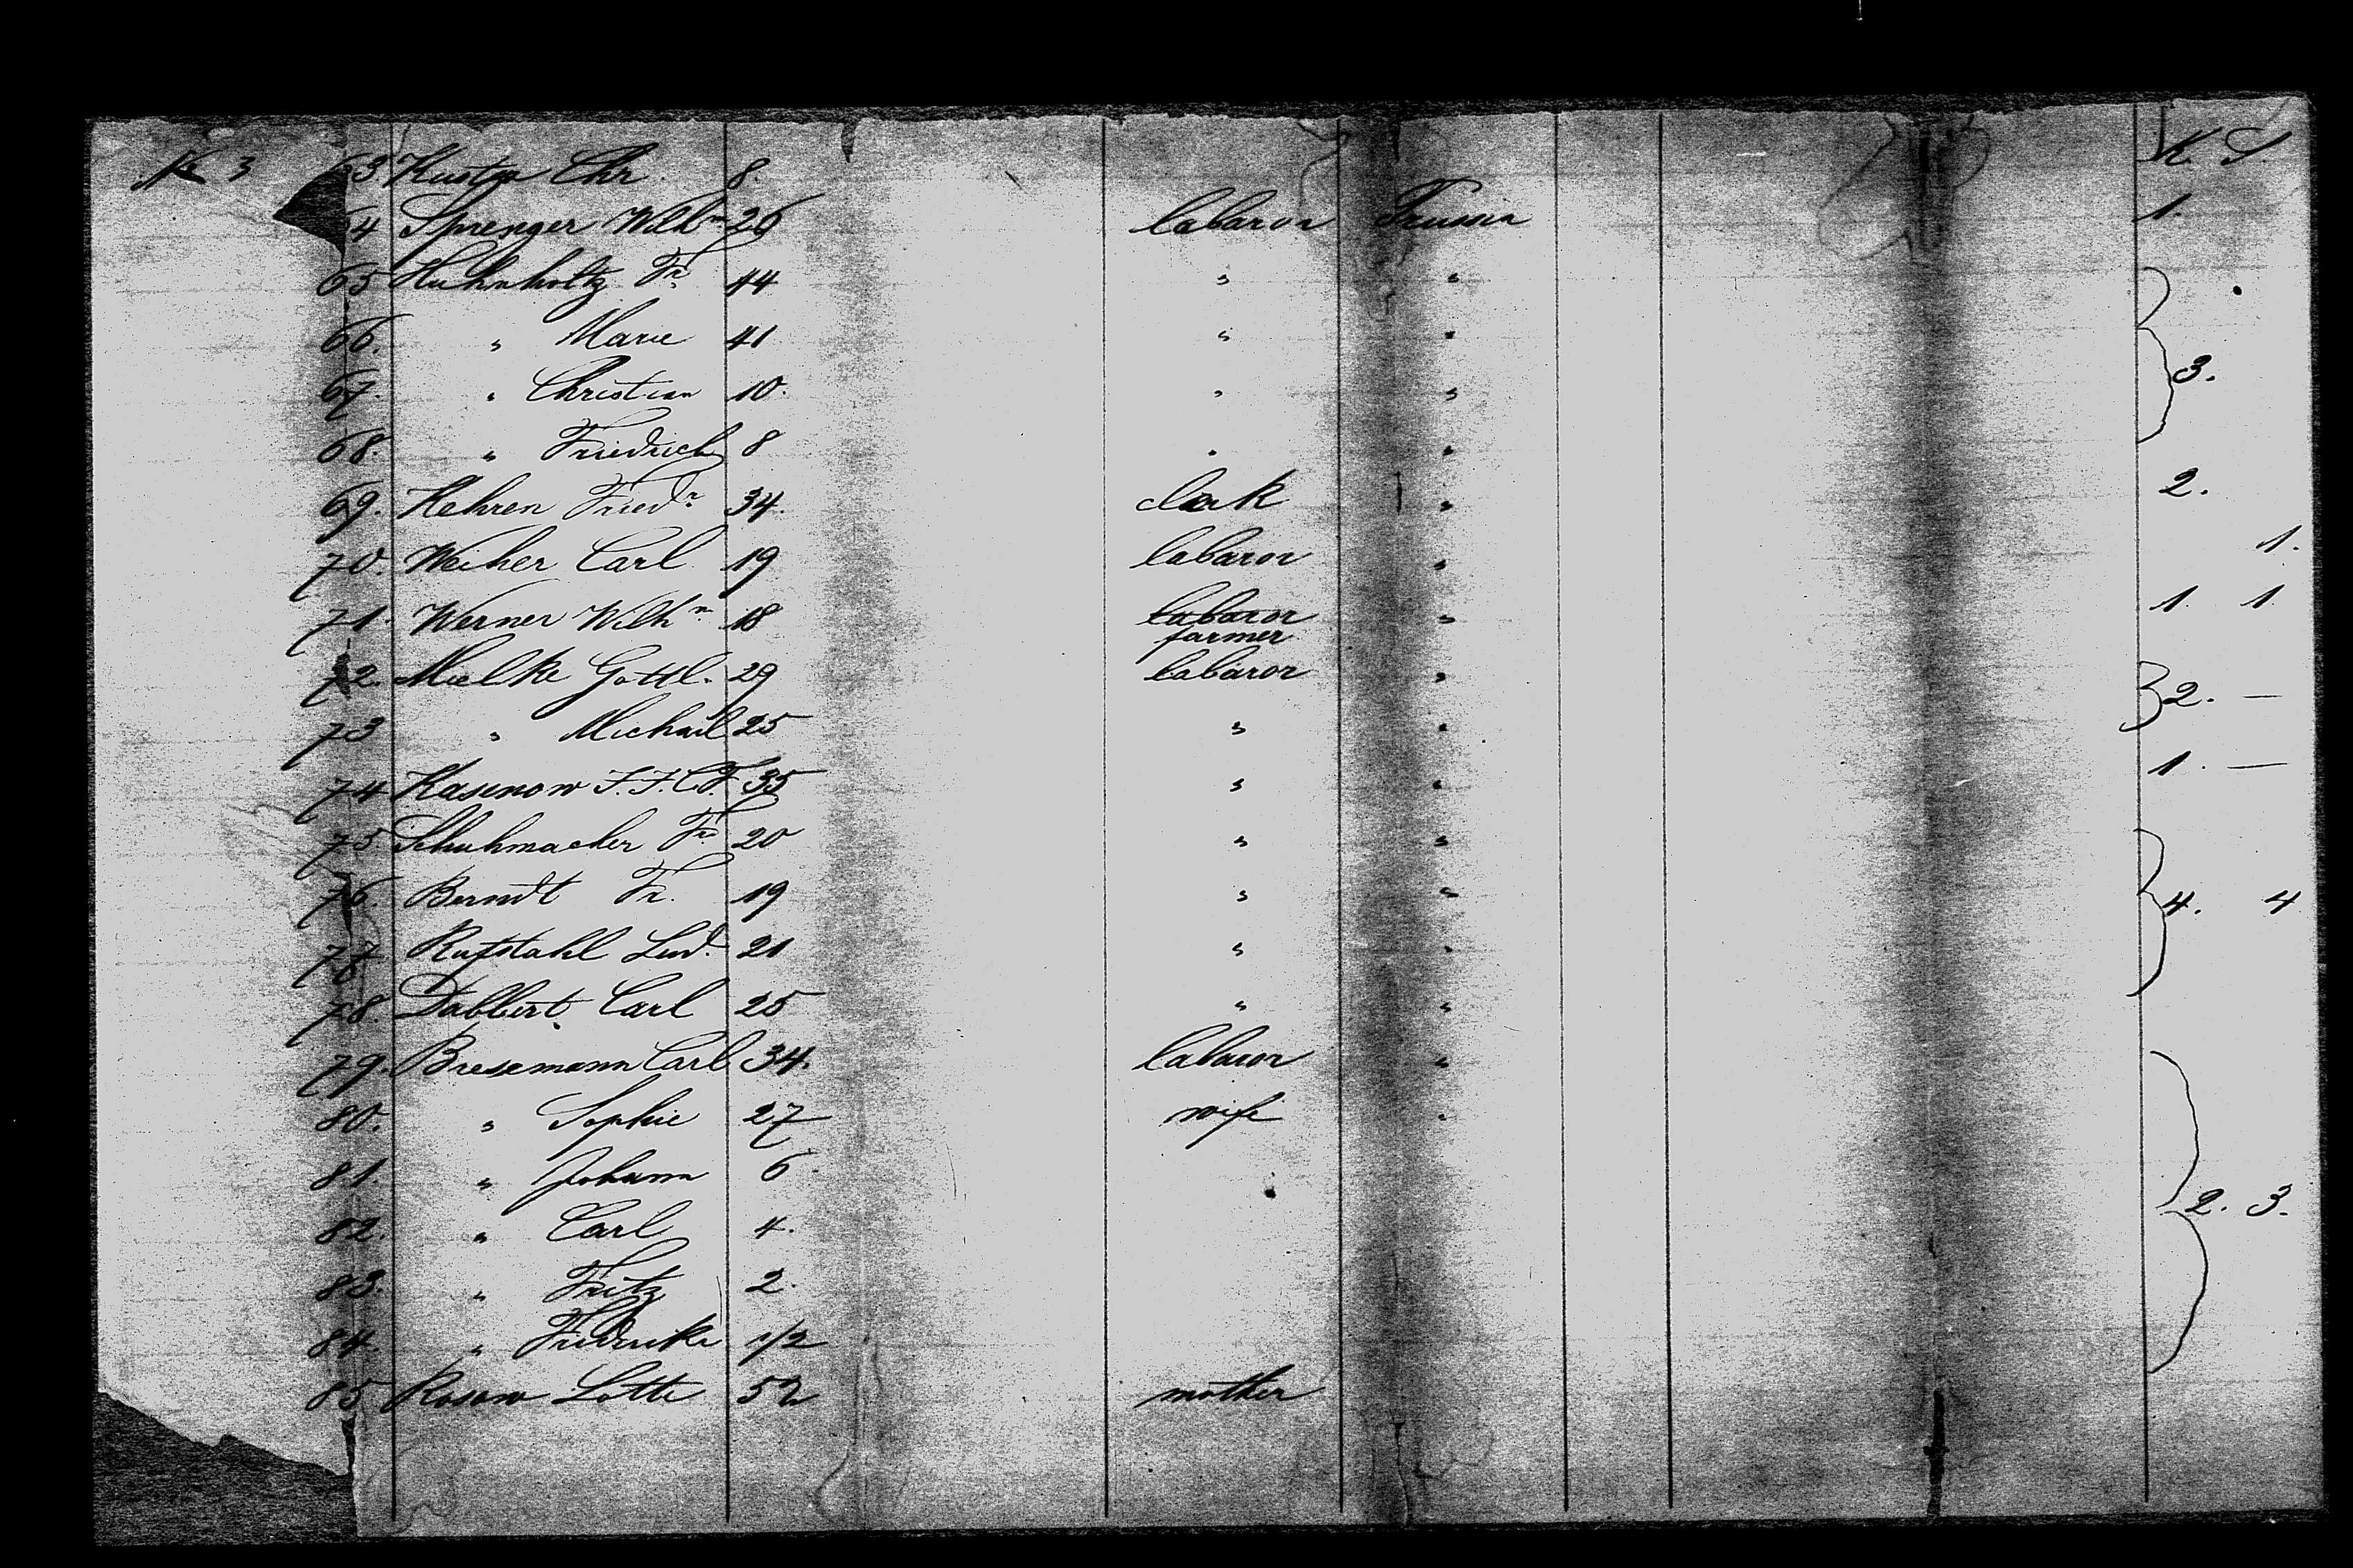 № 3 63 Kuster Chr. 8. K. S.
64 Sprenger Wilhm 26 labaror Prussia 1.
65 Huhnholtz Fr. 44 " "
66. " Marie 41 " "
67. " Christian 10. " " 3.
68. " Friedrich 8 " "
69. Kehren Friedr. 34. clark " 2.
70. Weiher Carl 19 labaror " 1.
71. Werner Wilhm 18 labaror " 1. 1.
farmer
72. Mielke Gottl. 29 labaror " 2. —
73 " Michael 25 " "
74 Kasenow F. F. C. F. 35 " " 1. —
75 Schuhmacher Fr. 20 " "
76. Berndt Fr. 19 " " 4. 4
77 Lud. 21 " "
78. Dabbert Carl 25 " "
79. Bresemann Carl 34. labaror "
80. " Sophie 27 wife "
81. " Johann 6
82. " Carl 4. 2. 3.
83. " Fritz 2.
84. " Friderike 1/2
85 Rosow Lotte 52 mother